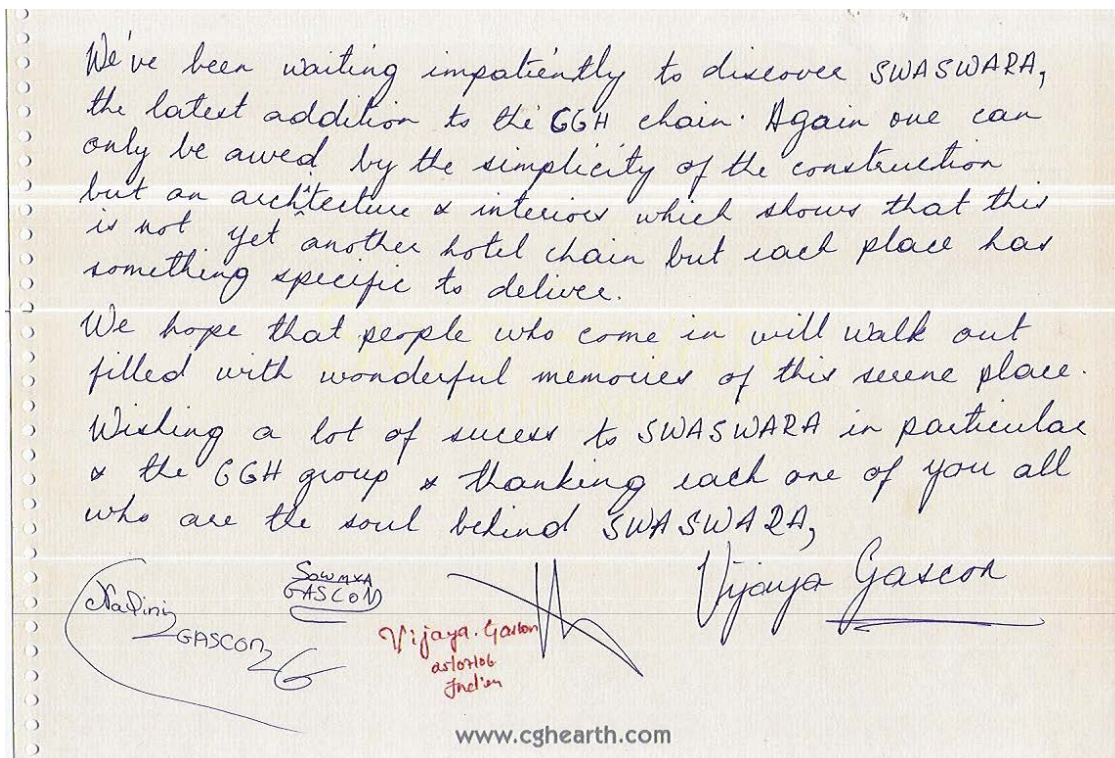 We've been waiting impatiently to discover SWASWARA,
the latest addition to the CGH chain. Again one can
only be awed by the simplicity of the construction
but an architecture & interiors which shows that this
is not yet another hotel chain but each place has
something specific to deliver.
We hope that people who come in will walk out
filled with wonderful memories of this serene place.
Wishing a lot of sucess to SWASWARA in particular
& the CGH group & thanking each one of you all
who are the soul behind SWASWARA,
Vijaya Gascon
SOWMYA
GASCON
Nalini
GASCON
Vijaya. Gascon
Indien
www.cghearth.com